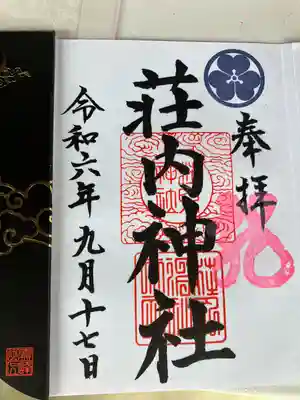 奉拝
荘内神社
令和六年九月十七日